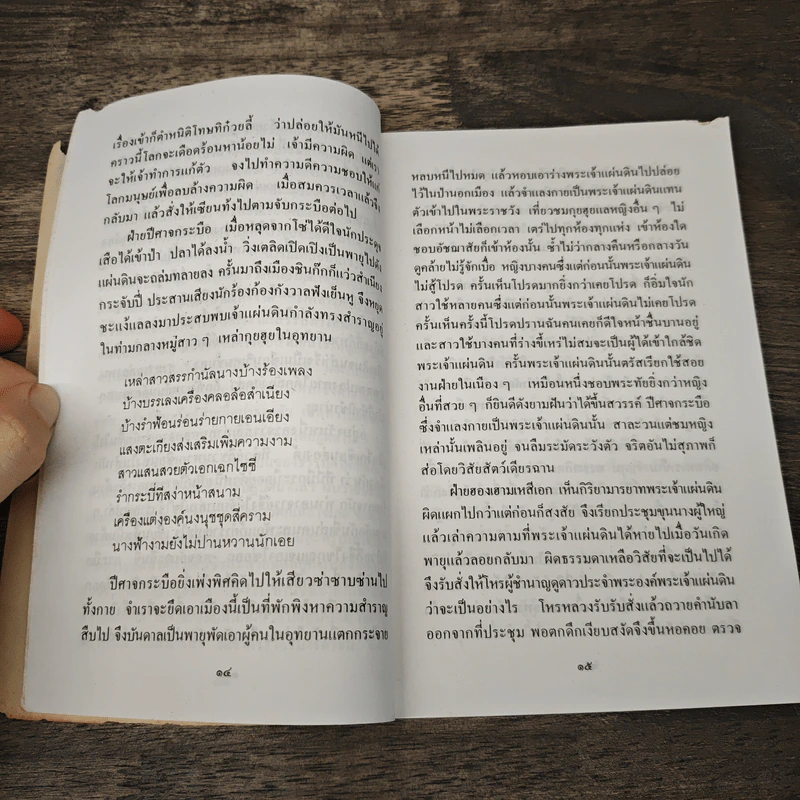 เรื่องเข้าก็ตำหนิติโทษทิก๋วยลี้ ว่าปล่อยให้มันหนีไปได้
คราวนี้โลกจะเดือดร้อนหาน้อยไม่ เจ้ามีความผิด แต่เรา
จะให้เจ้าทำการแก้ตัว จงไปทำความดีความชอบให้แก่
โลกมนุษย์เพื่อลบล้างความผิด เมื่อสมควรเวลาแล้วจึง
กลับมา แล้วสั่งให้เซียนทั้งไปตามจับกระบือต่อไป
ฝ่ายปีศาจกระบือ เมื่อหลุดจากโซ่ได้ดีใจนักประดุจ
เสือได้เข้าป่า ปลาได้ลงน้ำ วิ่งเตลิดเปิดเปิงเป็นพายุไปดัง
แผ่นดินจะถล่มทลายลง ครั้นมาถึงเมืองซินก๊กก็แว่วสำเนียง
กระจับปี่ ประสานเสียงนักร้องก้องกังวาลฟังเย็นหู จึงหยุด
ชะแง้แลลงมาประสบพบเจ้าแผ่นดินกำลังทรงสำราญอยู่
ในท่ามกลางหมู่สาว ๆ เหล่ากุยฮุยในอุทยาน
เหล่าสาวสรรกำนัลนางบ้างร้องเพลง
บ้างบรรเลงเครื่องคลอล้อสำเนียง
บ้างรำฟ้อนร่อนร่ายกายเอนเอียง
แสงตะเกียงส่งเสริมเพิ่มความงาม
สาวแสนสวยตัวเอกเฉกไซซี
รำกระบี่ทีสง่าหน้าสนาม
เครื่องแต่งองค์นงนุชชุดสีคราม
นางฟ้างามยังไม่ปานหวานนักเอย
ปีศาจกระบือยิ่งเพ่งพิศคิดไปให้เสียวซ่าซาบซ่านไป
ทั้งกาย จำเราจะยึดเอาเมืองนี้เป็นที่พักพิงหาความสำราญ
สืบไป จึงบันดาลเป็นพายุพัดเอาผู้คนในอุทยานแตกกระจาย
๑๔
หลบหนีไปหมด แล้วหอบเอาร่างพระเจ้าแผ่นดินไปปล่อย
ไว้ในป่านอกเมือง แล้วจำแลงกายเป็นพระเจ้าแผ่นดินแทน
ตัวเข้าไปในพระราชวัง เที่ยวชมกุยฮุยแลหญิงอื่น ๆ ไม่
เลือกหน้าไม่เลือกเวลา เตร่ไปทุกห้องทุกแห่ง เข้าห้องใด
ชอบอัชฌาสัยก็เข้าห้องนั้น ซ้ำไม่ว่ากลางคืนหรือกลางวัน
ดูคล้ายไม่รู้จักเบื่อ หญิงบางคนซึ่งแต่ก่อนนั้นพระเจ้าแผ่นดิน
ไม่สู้โปรด ครั้นเห็นโปรดมากยิ่งกว่าเคยโปรด ก็อิ่มใจนัก
สาวใช้หลายคนซึ่งแต่ก่อนนั้นพระเจ้าแผ่นดินไม่เคยโปรด
ครั้นเห็นครั้งนี้โปรดปรานฉันคนเคยก็ดีใจหน้าชื่นบานอยู่
และสาวใช้บางคนที่ร่างขี้เหร่ไม่สมจะเป็นผู้ได้เข้าใกล้ชิด
พระเจ้าแผ่นดิน ครั้นพระเจ้าแผ่นดินนั้นตรัสเรียกใช้สอย
งานฝ่ายในเนือง ๆ เหมือนหนึ่งชอบพระทัยยิ่งกว่าหญิง
อื่นที่สวย ๆ ก็ยินดีดังยามฝันว่าได้ขึ้นสวรรค์ ปีศาจกระบือ
ซึ่งจำแลงกายเป็นพระเจ้าแผ่นดินนั้น สาละวนแต่ชมหญิง
เหล่านั้นเพลินอยู่ จนลืมระมัดระวังตัว จริตอันไม่สุภาพก็
ส่อโดยวิสัยสัตว์เดียรฉาน
ฝ่ายฮองเฮามเหสีเอก เห็นกิริยามารยาทพระเจ้าแผ่นดิน
ผิดแผกไปกว่าแต่ก่อนก็สงสัย จึงเรียกประชุมขุนนางผู้ใหญ่
แล้วเล่าความตามที่พระเจ้าแผ่นดินได้หายไปเมื่อวันเกิด
พายุแล้วลอยกลับมา ผิดธรรมดาเหลือวิสัยที่จะเป็นไปได้
จึงรับสั่งให้โหรผู้ชำนาญดูดาวประจำพระองค์พระเจ้าแผ่นดิน
ว่าจะเป็นอย่างไร โหรหลวงรับรับสั่งแล้วถวายคำนับลา
ออกจากที่ประชุม พอตกดึกเงียบสงัดจึงขึ้นหอคอย ตรวจ
๑๕